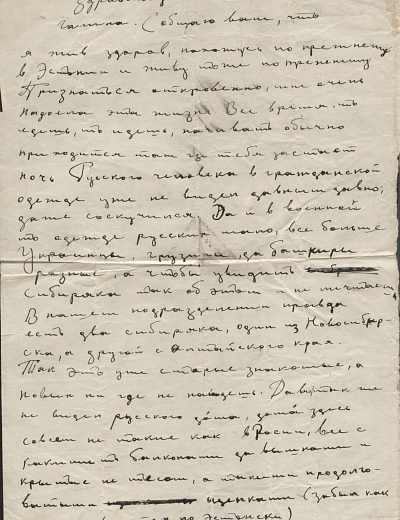 галина. Сообщаю вам, что
я жив здоров, нахожусь по прежнему
в Эстонии и живу тоже по прежнему
Признаться откровенно, мне очень
надоела эта жизнь. Все время то
едешь, то идешь, ночевать обычно
приходится там где тебя застает
ночь Русского человека в гражданской
одежде уже не видел давным давно,
даже соскучился. Да и в военной
то одежде русских мало, все больше
Украинцы, грузины, да башкиры
разные, а чтобы увидить
Сибиряка так об этом не мечтаем
В нашем подразделении правда
есть два сибиряка, один из Новосибир-
ска, а другой с Алтайского края.
Так это уже старые знакомые, а
новых ни где не найдешь. Давно так же
не видел русского дома, дома здесь
совсем не такие как в Росии, все с
балконами да вышками и
крытые не тесом, а такими продолго-
ватыми щепками (забыл как
по Эстонски)